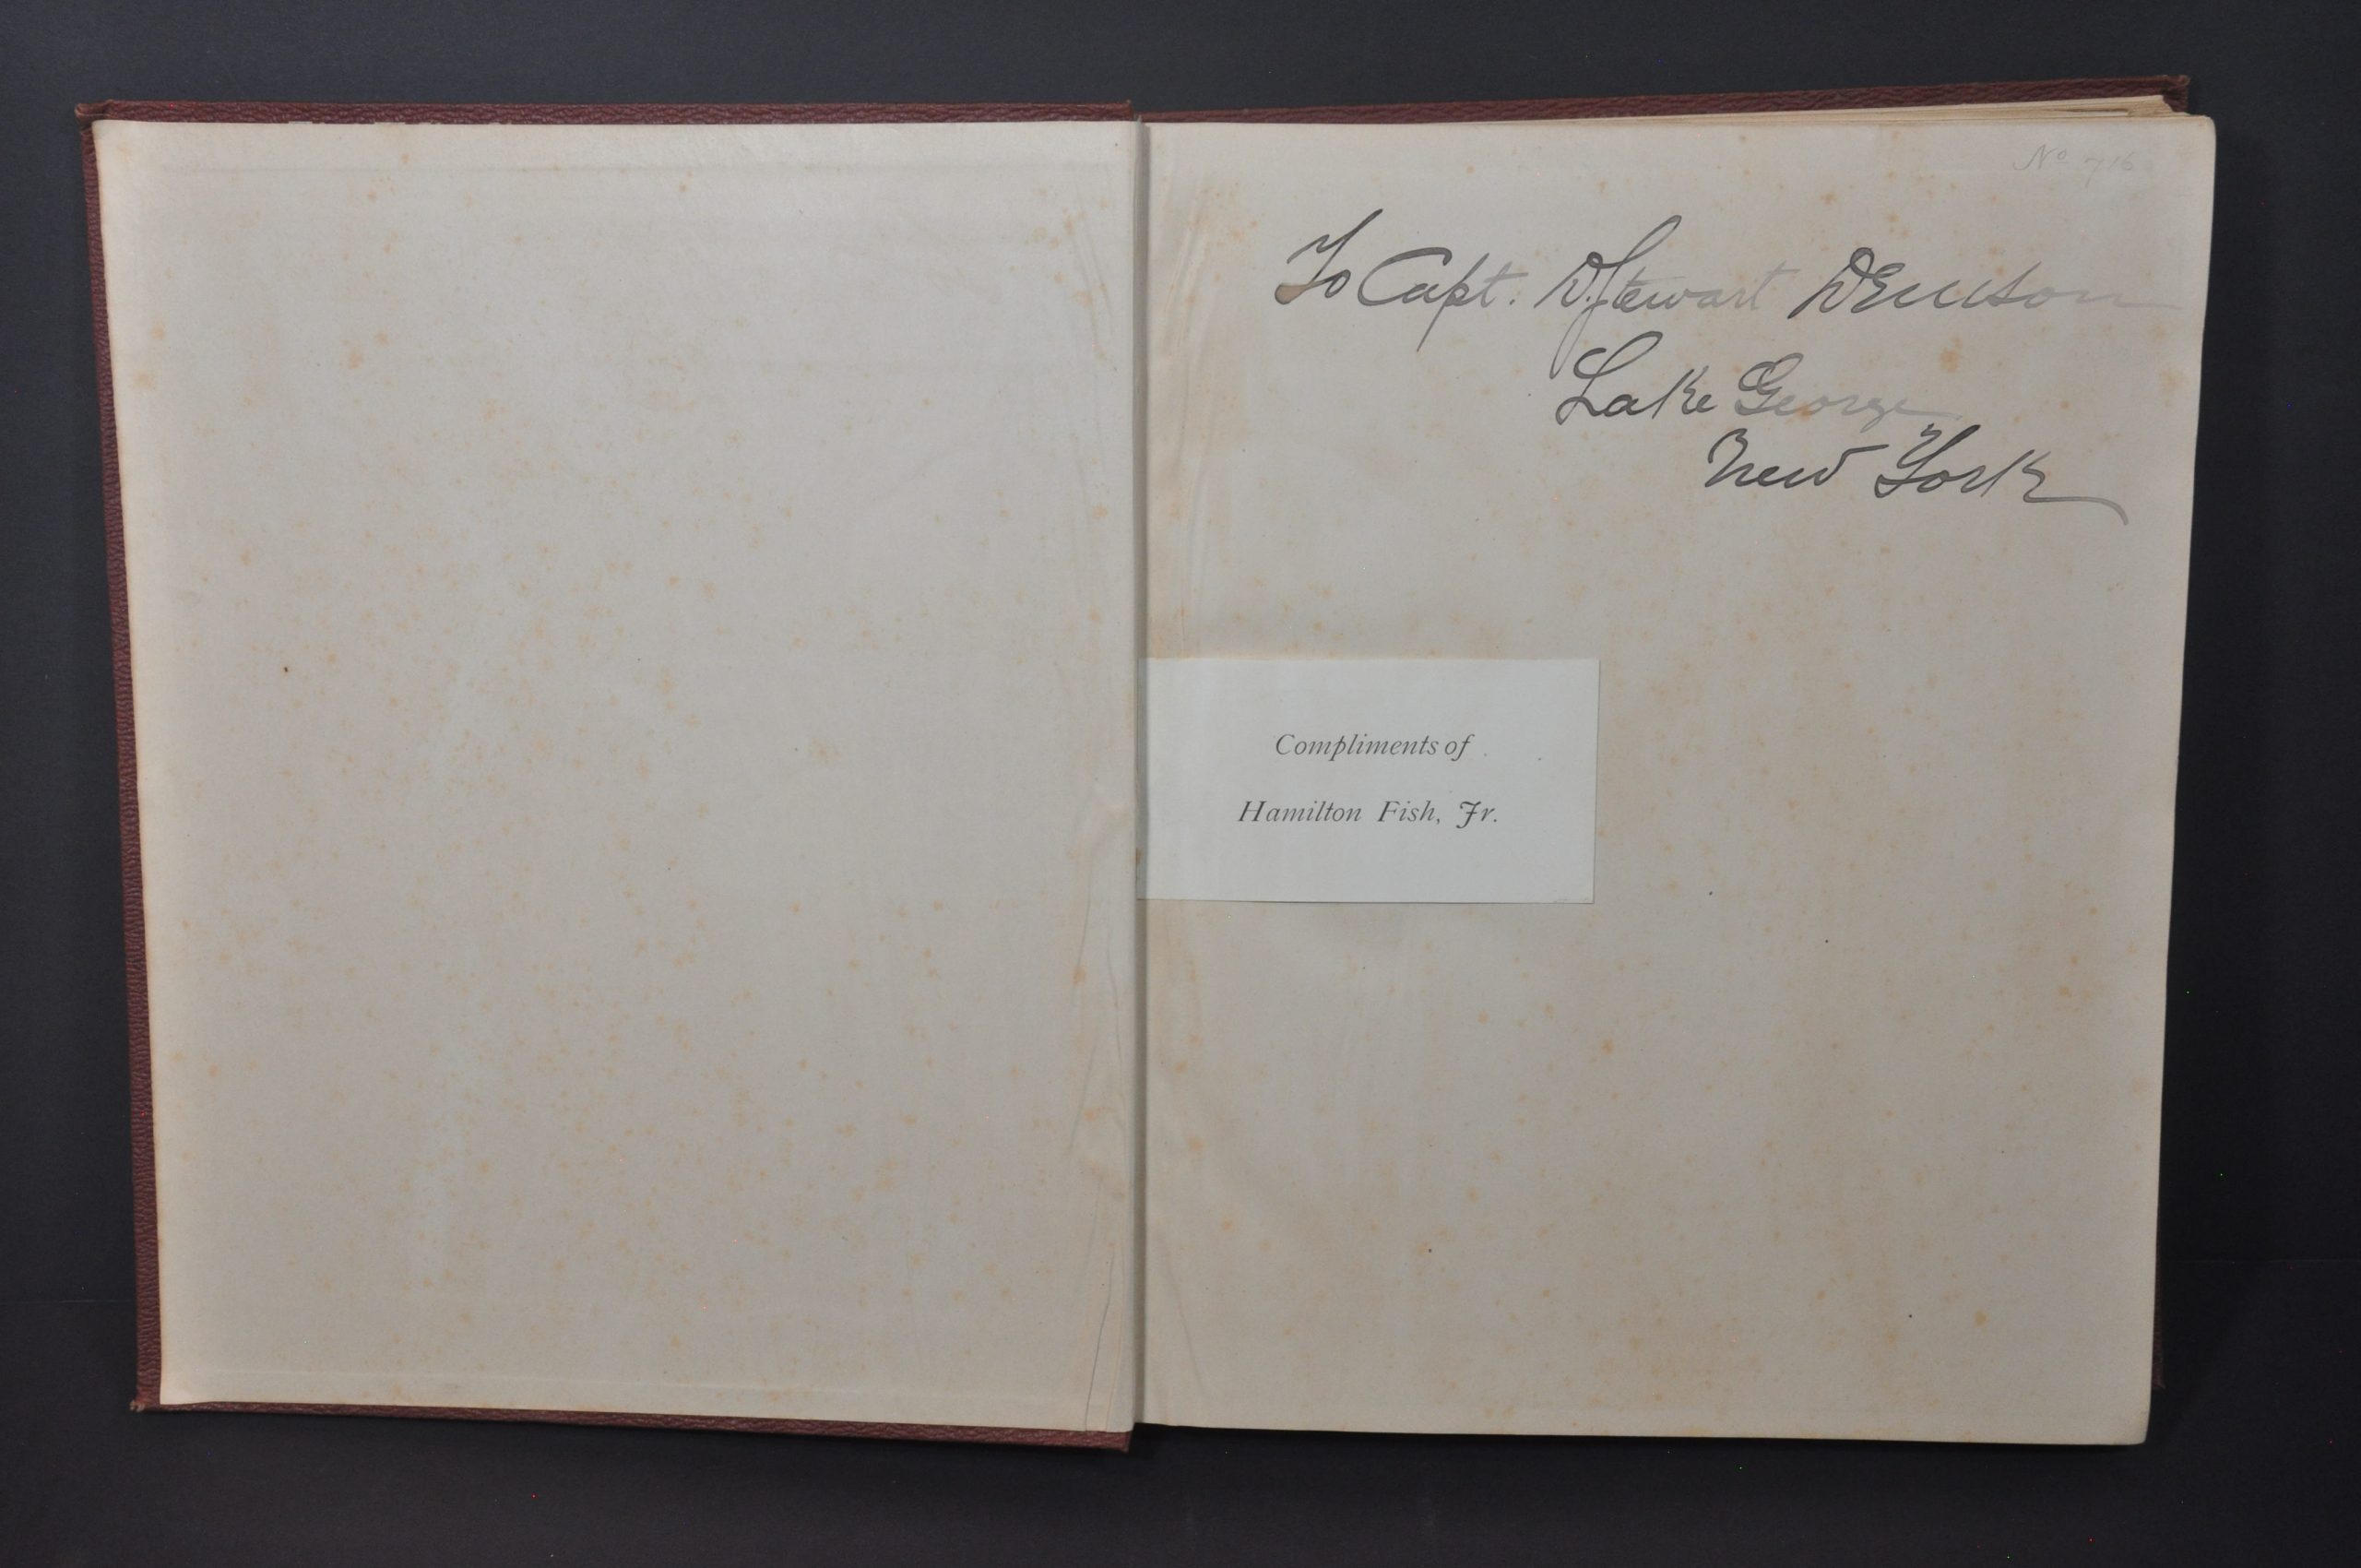 No 716
To Capt. D. Stewart Denison
Lake George
New York
Compliments of
Hamilton Fish, Jr.